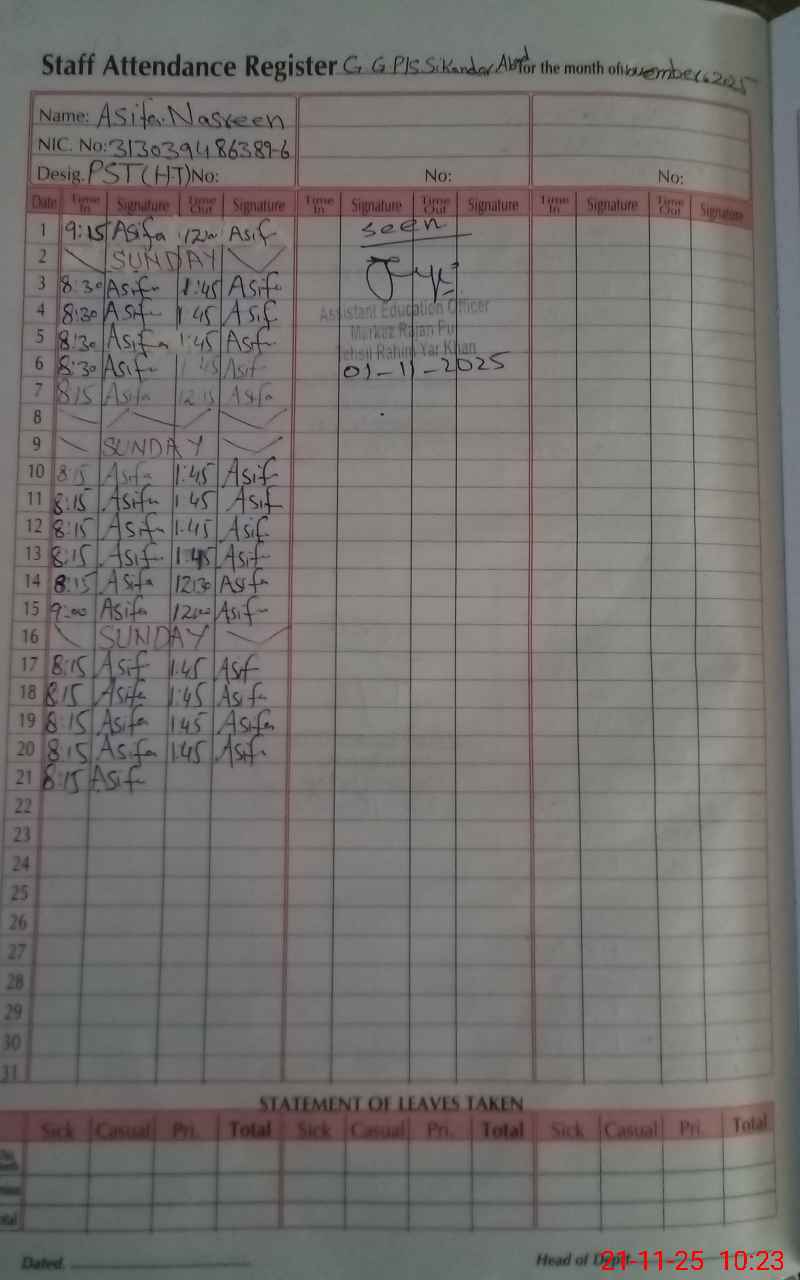 Staff Attendance Register G G P/S Sikandar Abad for the month of November 2025
Name: Asifa Nasreen
NIC. No: 313039486389-6
Desig. PST(HT) No: No: No:
Date Time In Signature Time Out Signature Time In Signature Time Out Signature Time In Signature Time Out Signature
1 9:15 Asifa 12:00 Asif seen
2 SUNDAY
3 8:30 Asifa 1:45 Asifa
4 8:30 Asifa 1:45 Asif
Assistant Education Officer
5 8:30 Asifa 1:45 Asifa
Markaz Rajan Pur
Tehsil Rahim Yar Khan
6 8:30 Asifa 1:45 Asif 01-11-2025
7 8:15 Asifa 12:15 Asifa
8
9 SUNDAY
10 8:15 Asifa 1:45 Asif
11 8:15 Asifa 1:45 Asif
12 8:15 Asifa 1:45 Asif
13 8:15 Asifa 1:45 Asifa
14 8:15 Asifa 12:30 Asifa
15 9:00 Asifa 12:00 Asifa
16 SUNDAY
17 8:15 Asif 1:45 Asif
18 8:15 Asifa 1:45 Asifa
19 8:15 Asifa 1:45 Asifa
20 8:15 Asifa 1:45 Asifa
21 8:15 Asif
22
23
24
25
26
27
28
29
30
31
STATEMENT OF LEAVES TAKEN
Sick Casual Pri. Total Sick Casual Pri. Total Sick Casual Pri. Total
Dated. Head of Deptt.
21-11-25 10:23